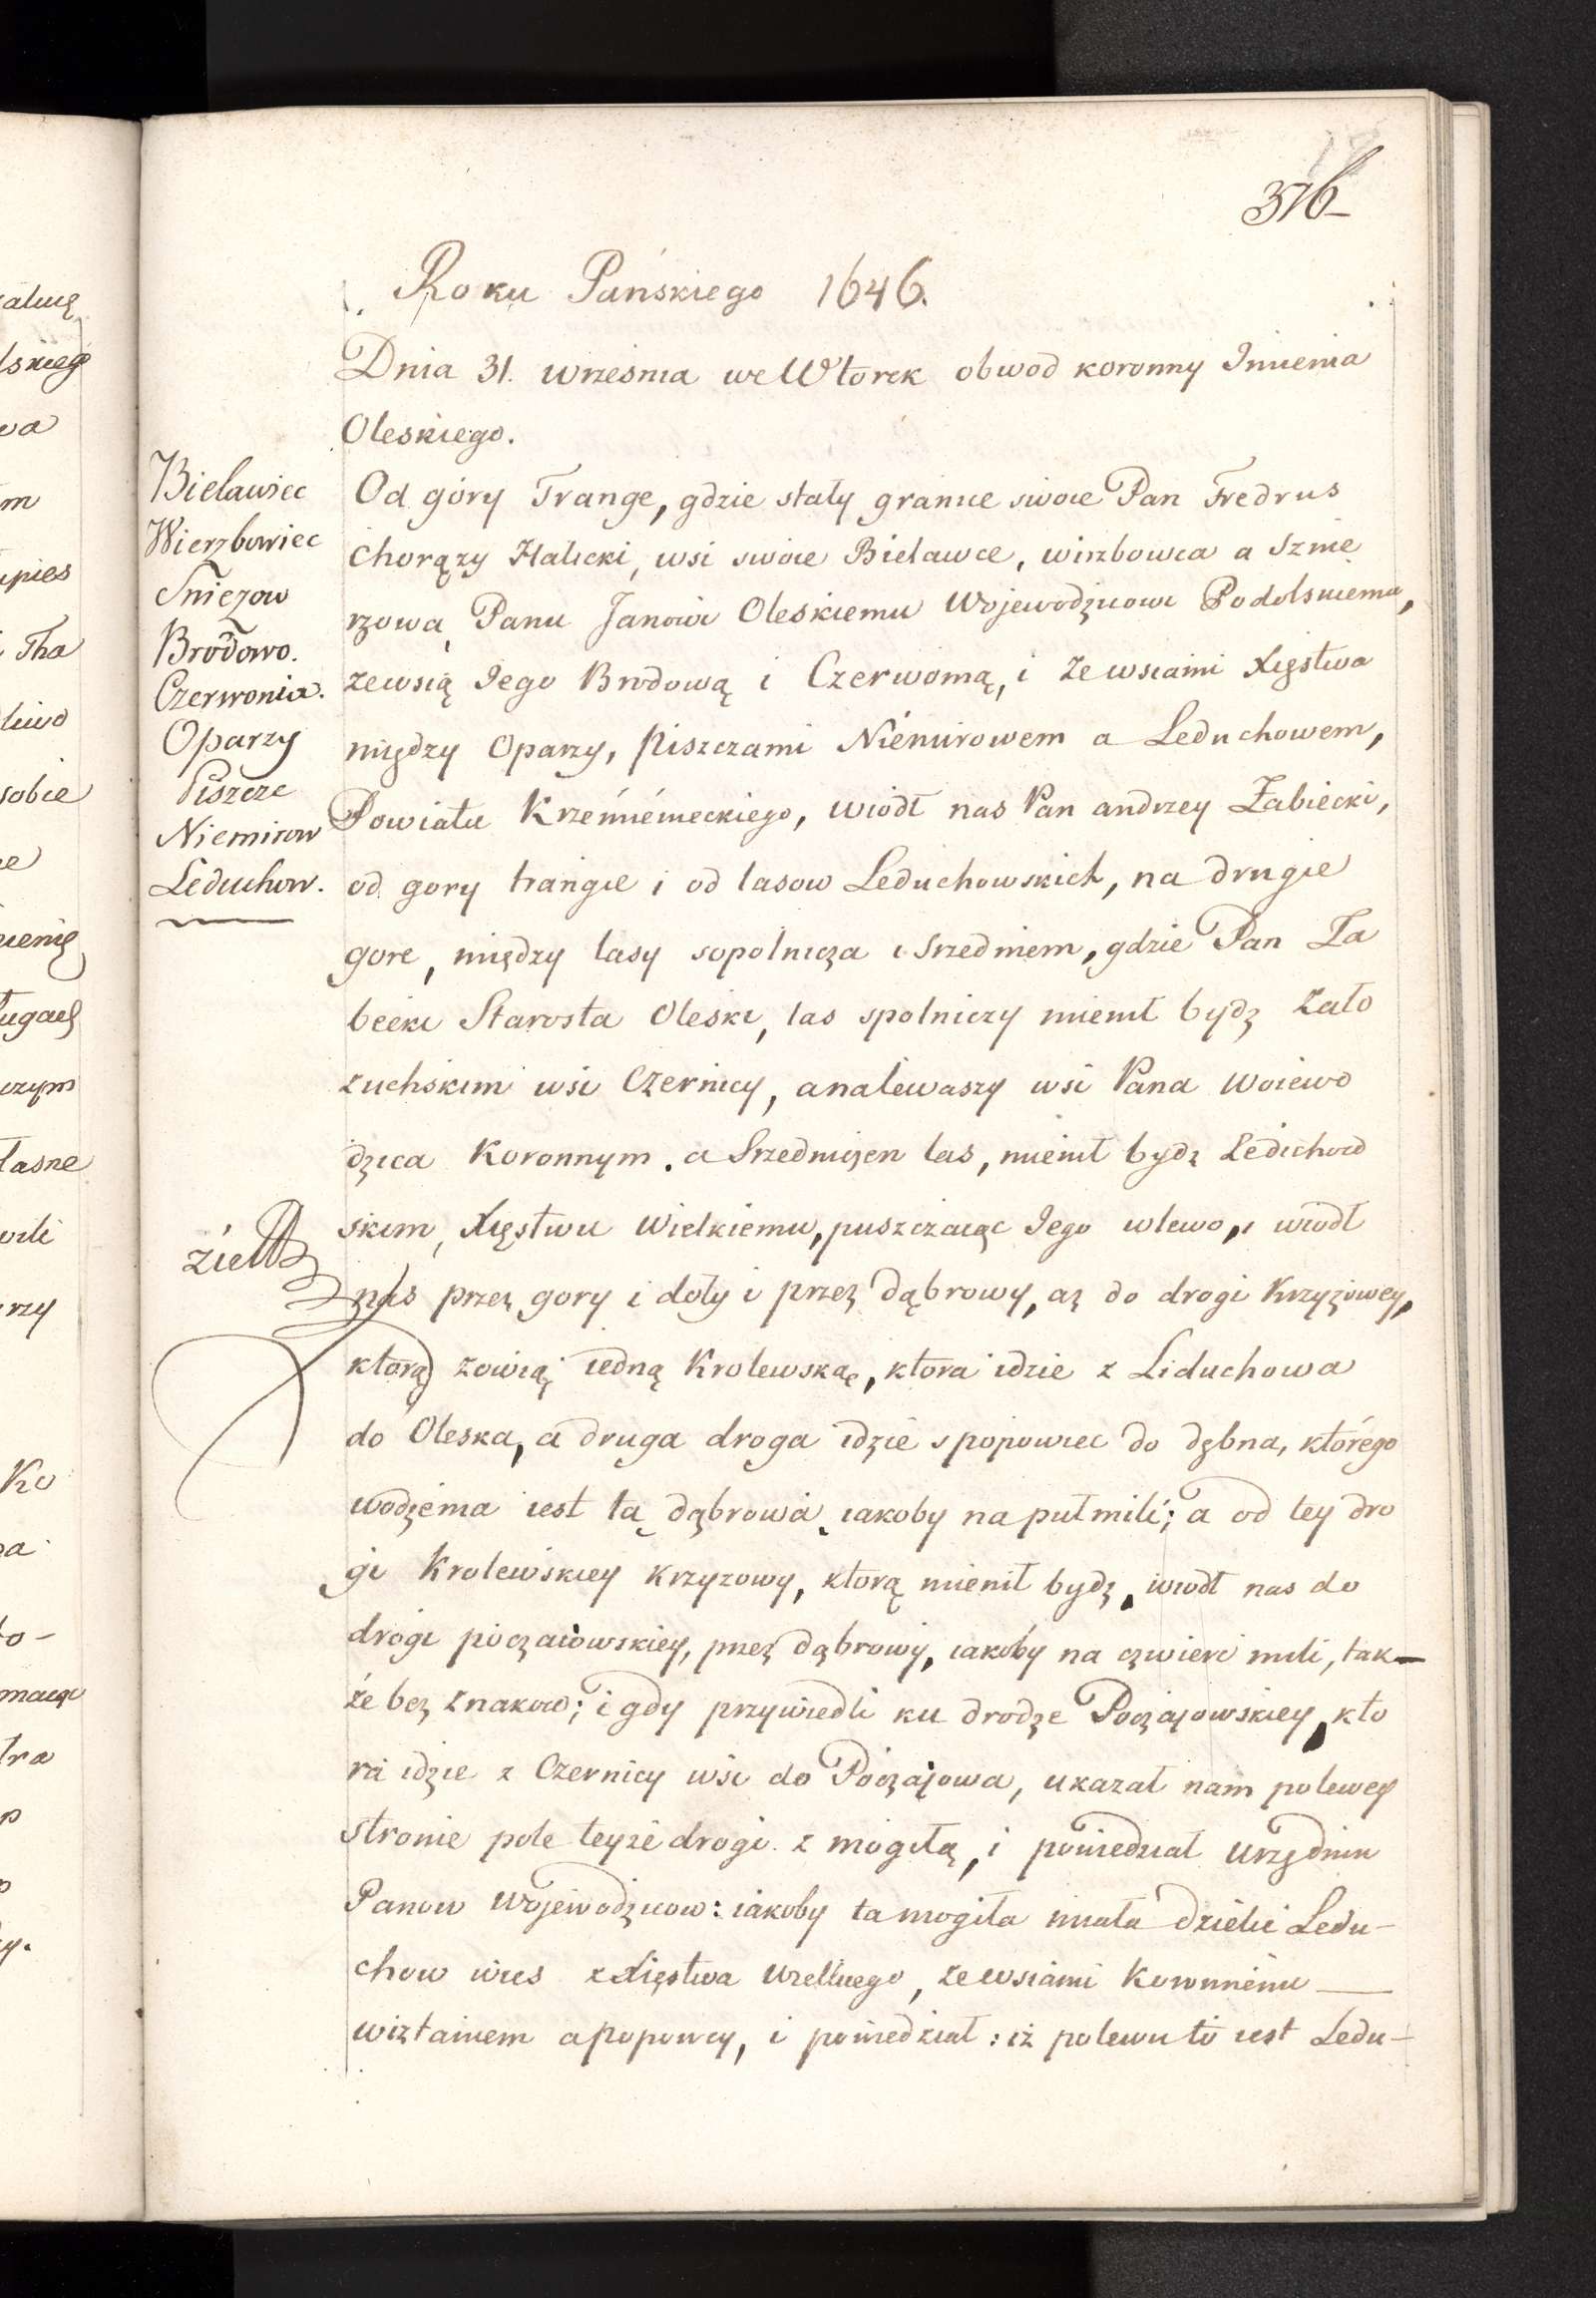 376
Roku Pańskiego 1646.
Dnia 31. wrzesnia we Wtorek obwod koronny Imienia
Oleskiego.
Bielawiec
Wierzbowiec
Sniezow
Brodowo.
Czerwonia.
Oparzy
Piszcze
Niemirow
Leduchow.
Od góry Trange, gdzie stały granice swoie Pan Fredrus
Chorązy Halicki, wsi swoie Bielawce, wirzbowca a Sznie
rzowa, Panu Janowi Oleskiemu Wojewodzicowi Podolskiemu,
zewsią Jego Brodową i Czerwomą, i Ze wsiami Xięstwa
między Oparzy, Piszczami Niemirowem a Leduchowem,
Powiatu Krzemiemieckiego, wiodł nas Pan andrzey Łabiecki,
od gory trangie i od lasow Leduchowskich, na drugie
gore, między lasy sopolnicza i Srzedniem, gdzie Pan Ła
biecki Starosta Oleski, las spolniczy mienił bydz Zało
zuchskim wsi Czernicy, analewaszy wsi Pana Woiewo
dzica Koronnym. a Srzedniyen las, mienił bydz Ledichow
skim, Xięstwu Wielkiemu, puszczaiąc Jego wlewo, i wiodł
nas przez gory i doły i przez dąbrowy, az do drogi Krzyzowey,
ktorą zowią iedną Krolewskąe, ktora idzie z Liduchowa
do Oleska, a druga droga idzie s popowiec do dębna, którego
wodzema iest ta dąbrowa iakoby na pułmili; a od tey dro
gi Krolewskiey krzyzowy, ktorą mienił bydz, wiodł nas do
drogi poczaiowskiey, przez dąbrowy, iakoby na czwierć mili, tak-
że bez znakow; i gdy przywiedli ku drodze Poczajowskiey, kto
ra idzie z Czernicy wsi do Poczajowa, ukazał nam polewey
stronie pole teyże drogi z mogiłą, i powiedział urzędnik
Panow Wojewodzicow: iakoby ta mogiła miała dzielić Ledu-
chow wies z Xięstwa Wielkiego, ze wsiami Koronnemi
wiztainem a popowcy, i powiedział: iż polewu to iest Ledu-